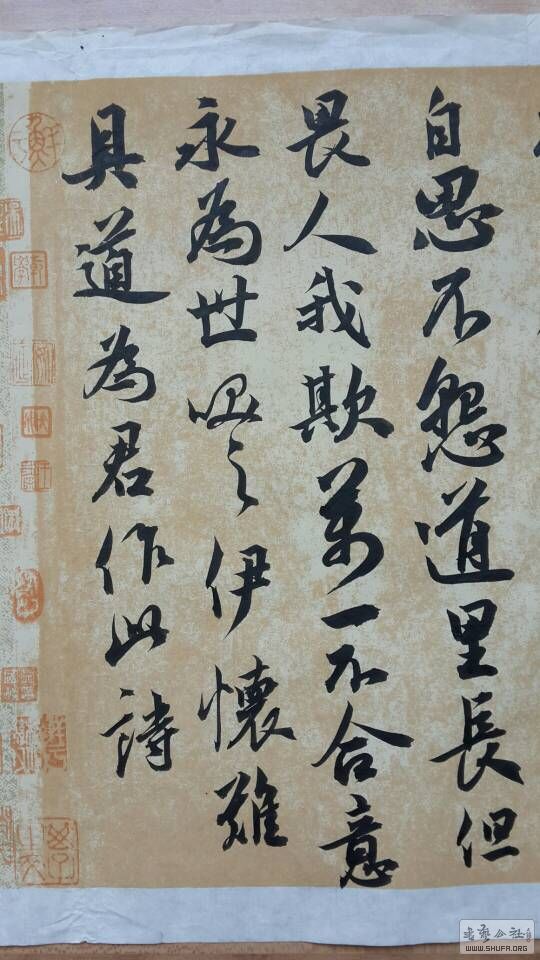 自思不怨道里長但
畏人我欺萬一不合意
永為世咲之伊懷難
具道為君作此詩
書藝公社
WWW.SHUFA.ORG